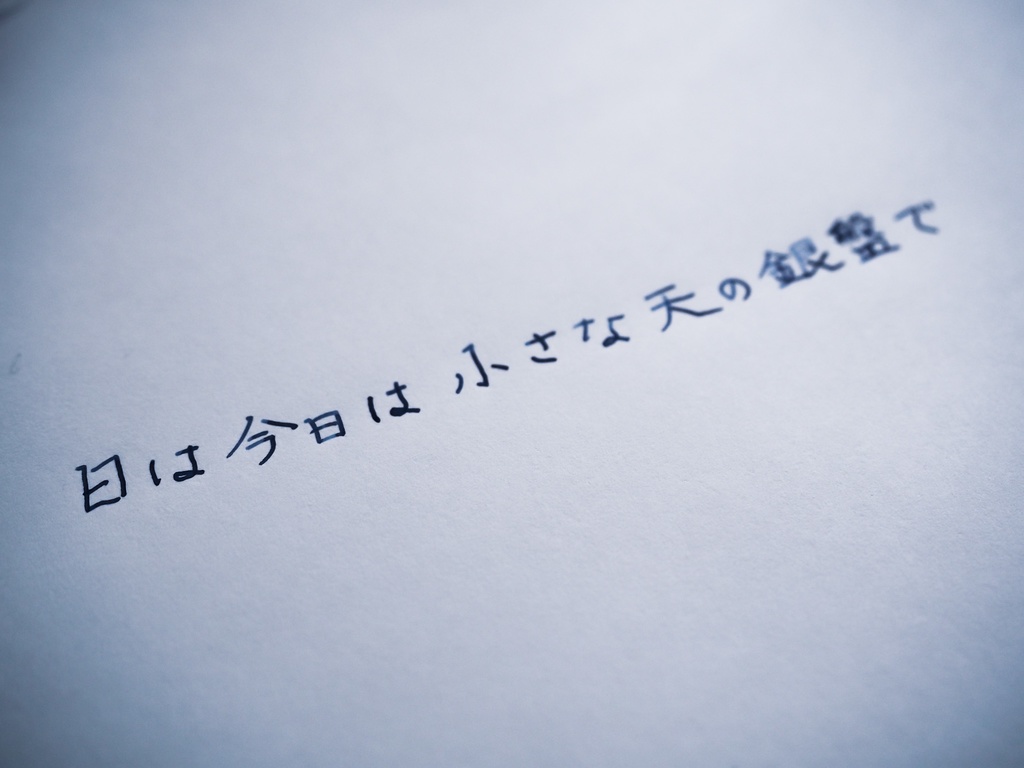 日は今日は小さな天の銀盤で